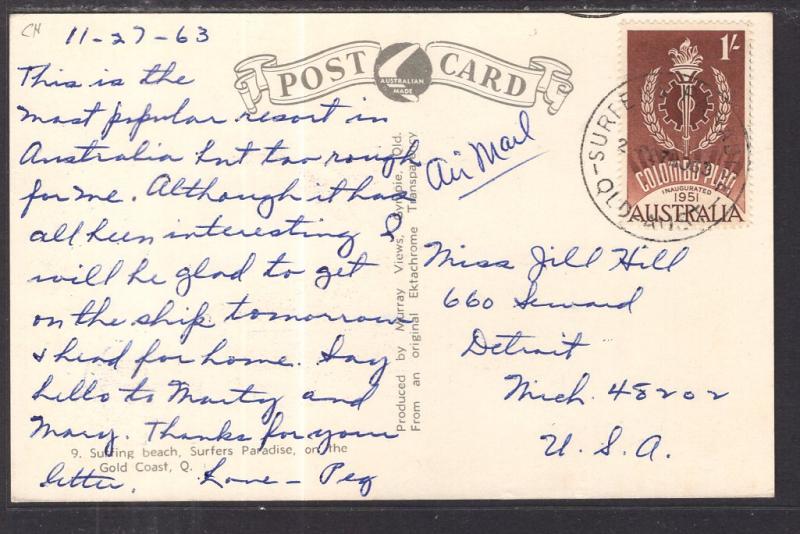 CH
11-27-63
This is the
most popular resort in
Australia but too rough
for me. Although it has
all been interesting I
will be glad to get
on the ship tomorrow
& head for home. Say
hello to Marty and
Mary. Thanks for your
letter. Love - Peg
9. Surfing beach, Surfers Paradise, on the
Gold Coast, Q.
POST CARD
AUSTRALIAN
MADE
Produced by Murray Views, Gympie, Qld.
From an original Ektachrome Transparency
Air Mail
Miss Jill Hill
660 Seward
Detroit
Mich. 48202
U.S.A.
1/-
COLOMBO PLAN
INAUGURATED
1951
AUSTRALIA
-SURFE
QLD-AUS